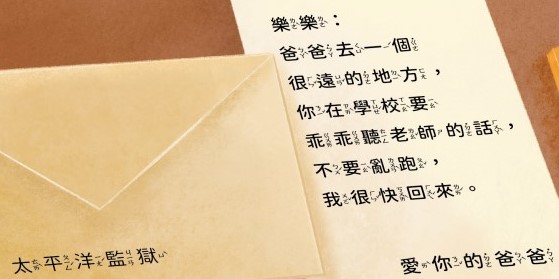 樂樂：
爸爸去一個
很遠的地方，
你在學校要
乖乖聽老師的話，
不要亂跑，
我很快回來。
愛你的爸爸
太平洋監獄